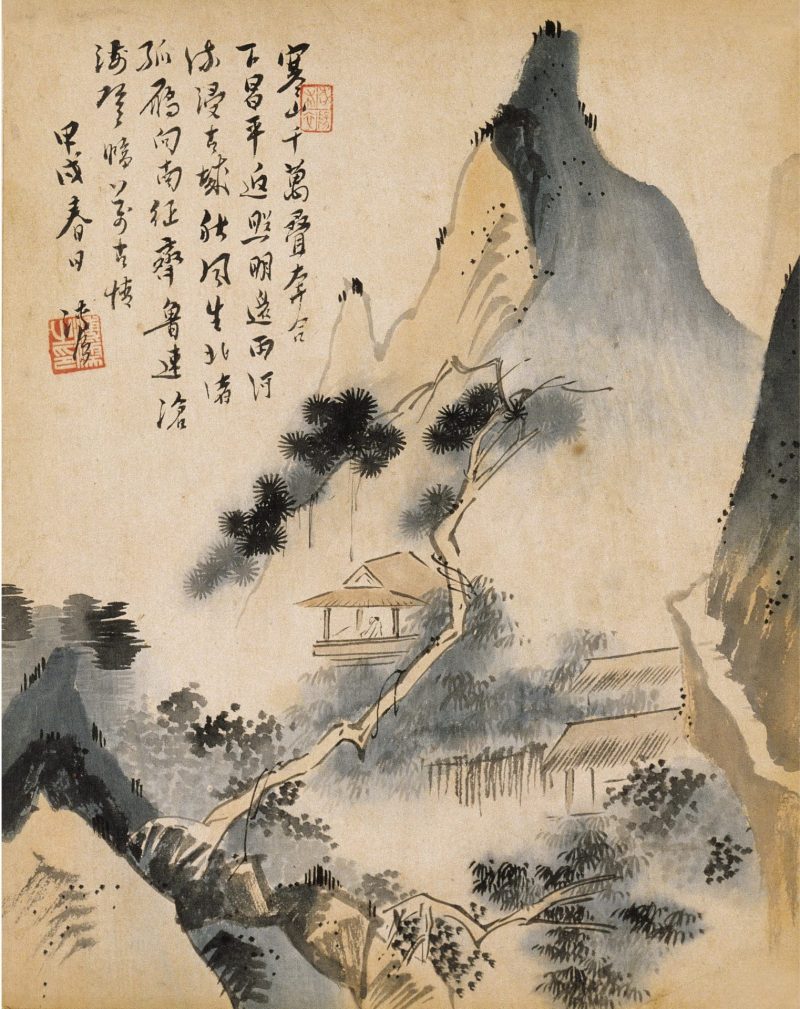 寒山千萬疊奔合
下昌平返照明邊雨河
流浸古城秋風生北渚
孤雁向南征齊魯連滄
海登臨萬古情
甲戌春日